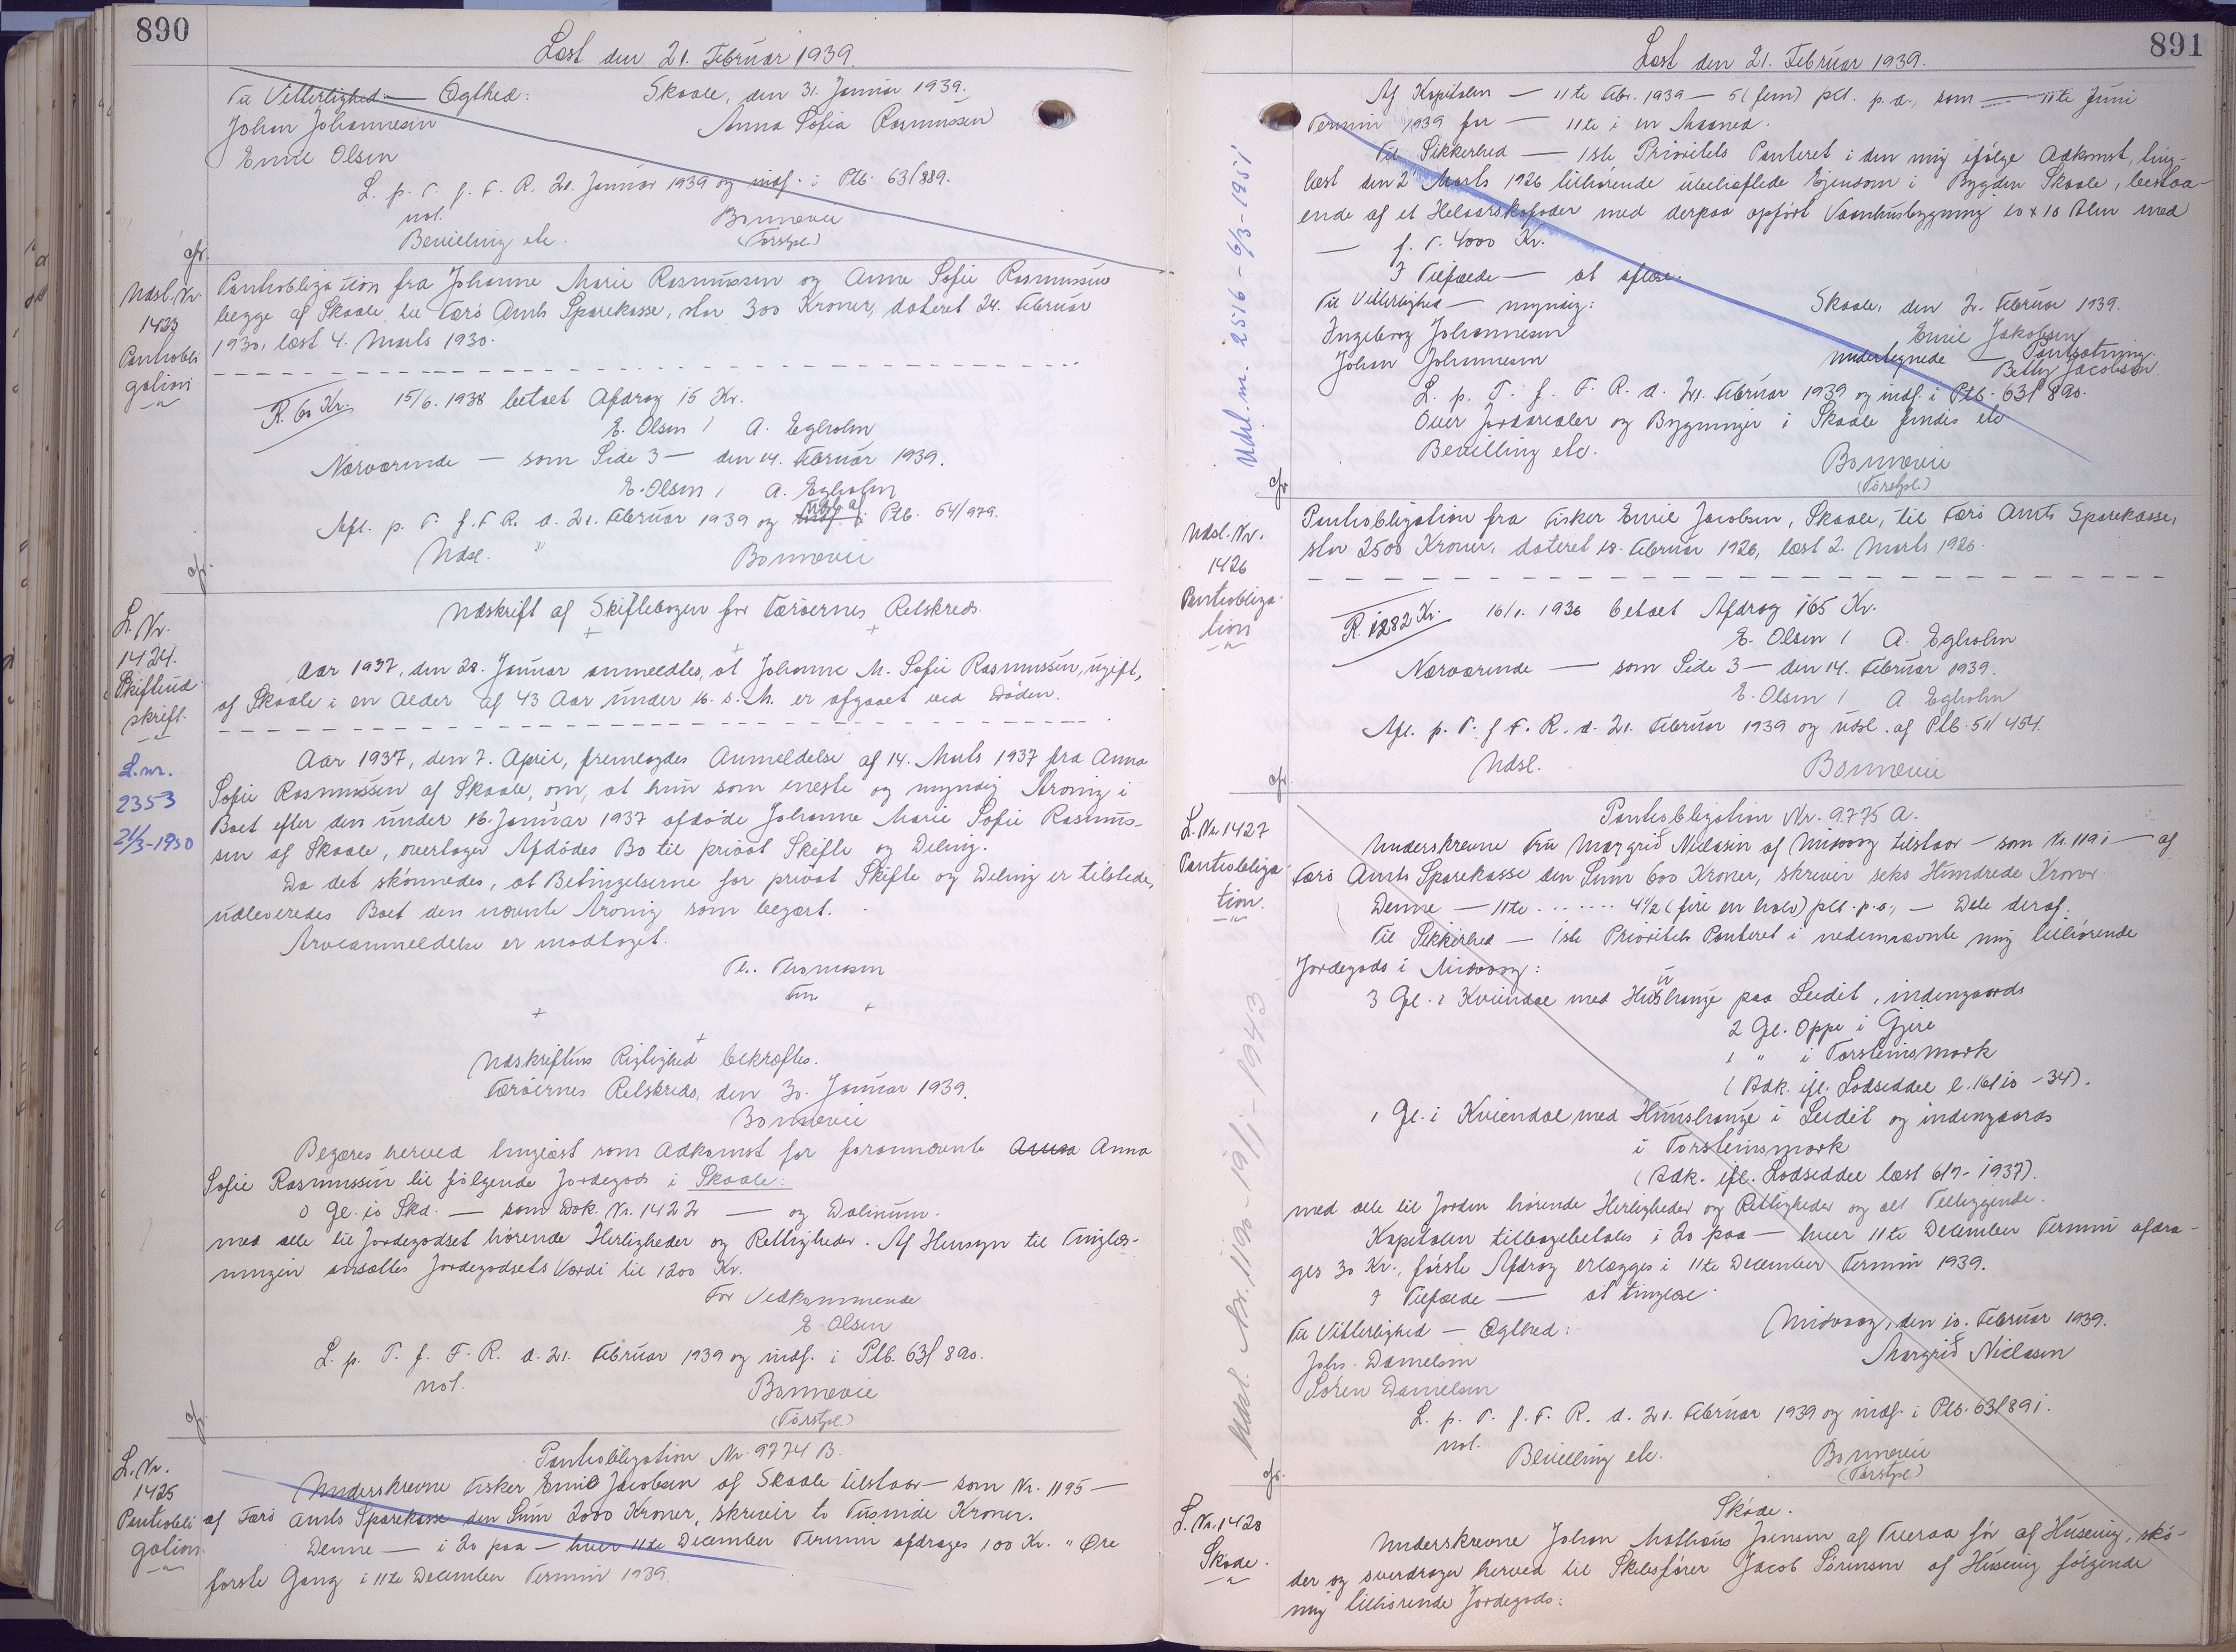 890
Læst den 21. Februar 1939.
Til Vitterlighed — Ægthed: Skaale, den 31. Januar 1939.
Johan Johannesen Anna Sofia Rasmussen
Emil Olsen
L. p. T. f. F. R. 21. Januar 1939 og indf. i Ptb. 63/889.
not. Bonnevie
Bevilling etc. (Forstpl.)
Udsl. Nr.
1423
Pantobli
gation
Pantobligation fra Johanne Marie Rasmussen og Anna Sofie Rasmussen
begge af Skaale til Færø Amts Sparekasse, stor 300 Kroner, dateret 24. Februar
1930, læst 4. Marts 1930.
R. 60 Kr. 15/6. 1938 betalt Afdrag 15 Kr.
E. Olsen / A. Egholm
Nærværende — som Side 3 — den 14. Februar 1939.
E. Olsen / A. Egholm
Afl. p. T. f. F. R. d. 21. Februar 1939 og Ptb. 54/979.
Udsl. " Bonnevie
L. Nr.
1424.
Skifteud
skrift.
Udskrift af Skiftebogen for Færøernes Retskreds.
Aar 1937, den 28. Januar anmeldtes, at Johanne M. Sofie Rasmussen, ugift,
af Skaale i en Alder af 43 Aar under 16. s. M. er afgaaet ved Døden.
L. nr.
2353
21/3-1950
Aar 1937, den 7. April, fremlagdes Anmeldelse af 14. Marts 1937 fra Anna
Sofie Rasmussen af Skaale, om, at hun som eneste og myndig Arving i
Boet efter den under 16. Januar 1937 afdøde Johanne Marie Sofie Rasmus-
sen af Skaale, overtager Afdødes Bo til privat Skifte og Deling.
Da det skønnedes, at Betingelserne for privat Skifte og Deling er tilstede,
udleveredes Boet den nævnte Arving som begært.
Arveanmeldelse er modtaget.
Th. Thomsen
fm
Udskriftens Rigtighed bekræftes.
Færøernes Retskreds, den 30. Januar 1939.
Bonnevie
Begæres herved tinglæst som Adkomst for forannævnte Anna
Sofie Rasmussen til følgende Jordegods i Skaale:
0 Gl. 10 Skd. — som Dok. Nr. 1422 — og Dalinum.
med alle til Jordegodset hørende Herligheder og Rettigheder. Af Hensyn til Tinglæs-
ningen ansættes Jordegodsets Værdi til 1200 Kr.
For Vedkommende
E. Olsen
L. p. T. f. F. R. d. 21. Februar 1939 og indf. i Ptb. 63/890.
not. Bonnevie
(Forstpl.)
L. Nr.
1425
Pantobli
gation.
Pantobligation Nr. 9774 B.
Underskrevne Fisker Emil Jacobsen af Skaale tilstaar — som Nr. 1195 —
af Færø Amts Sparekasse den Sum 2000 Kroner, skriver to Tusinde Kroner.
Denne — i 20 paa — hver 11te December Termin afdrages 100 Kr. " Øre
første Gang i 11te December Termin 1939.
891
Læst den 21. Februar 1939.
Af Kapitalen — 11te Febr. 1939 — 5 (fem) pct. p. a., som — 11te Juni
Termin 1939 for — 11te i en Maaned.
Til Sikkerhed — 1ste Prioritets Panteret i den mig ifølge Adkomst, ting-
læst den 2 Marts 1926 tilhørende ubehæftede Ejendom i Bygden Skaale, bestaa-
ende af et Helaarskofoder med derpaa opført Vaanhusbygning 10 x 10 Alen med
— f. T. 4000 Kr.
I Tilfælde — at aflæse.
Til Vitterlighed — myndig: Skaale, den 2. Februar 1939.
Ingeborg Johannesen Emil Jakobsen
Johan Johannesen undertegnede — Pantsætning.
Betty Jacobsen.
L. p. T. f. F. R. d. 21. Februar 1939 og indf. i Ptb. 63/890.
Over Jordarealer og Bygninger i Skaale findes etc
Bevilling etc. Bonnevie
(Forstpl.)
Udsl. nr. 2516 - 6/3-1951
Udsl. Nr.
1426
Pantobliga-
tion
Pantobligation fra Fisker Emil Jacobsen, Skaale, til Færø Amts Sparekasse,
stor 2500 Kroner, dateret 18. Februar 1926, læst 2. Marts 1926.
R. 1282 Kr. 16/1. 1936 betalt Afdrag 165 Kr.
E. Olsen / A. Egholm
Nærværende — som Side 3 — den 14. Februar 1939.
E. Olsen / A. Egholm
Afl. p. T. f. F. R. d. 21. Februar 1939 og udsl. af Ptb. 51/454.
Udsl. Bonnevie
L. Nr. 1427
Pantobliga
tion.
Pantobligation Nr. 9775 A.
Underskrevne Fru Margrid Niclasen af Midvaag tilstaar — som Nr. 1191 — af
Færø Amts Sparekasse den Sum 600 Kroner, skriver seks Hundrede Kroner
Denne — 11te ....... 4 1/2 (fire en halv) pct. p. a., — Dele deraf.
Til Sikkerhed — 1ste Prioritets Panteret i nedennævnte mig tilhørende
Jordegods i Midvaag:
3 Gl. i Kviendal med Hushange paa Leidit, indengaards
2 Gl. Oppe i Gjire
1 " i Torsteinsmørk
(Adk. ifl. Lodseddel l. 16/10 - 34).
1 Gl. i Kviendal med Huushange i Leidit og indengaards
i Torsteinsmørk
(Adk. ifl. Lodseddel læst 6/7 - 1937).
med alle til Jorden hørende Herligheder og Rettigheder og alt Tilliggende.
Kapitalen tilbagebetales i 20 paa — hver 11te December Termin afdra-
ges 30 Kr., første Afdrag erlægges i 11te December Termin 1939.
I Tilfælde — at tinglæse.
Til Vitterlighed — Ægthed: Midvaag, den 10. Februar 1939.
Johs. Danielsen Margrid Niclasen
Søren Danielsen
L. p. T. f. F. R. d. 21. Februar 1939 og indf. i Ptb. 63/891.
not. Bevilling etc. Bonnevie
(Forstpl.)
Udsl. Nr. 1190 - 19/1 - 1943
L. Nr. 1428
Skøde.
Skøde.
Underskrevne Johan Mathæus Joensen af Tveraa før af Husevig, skø-
der og overdrager herved til Skibsfører Jacob Sørensen af Husevig følgende
mig tilhørende Jordegods: